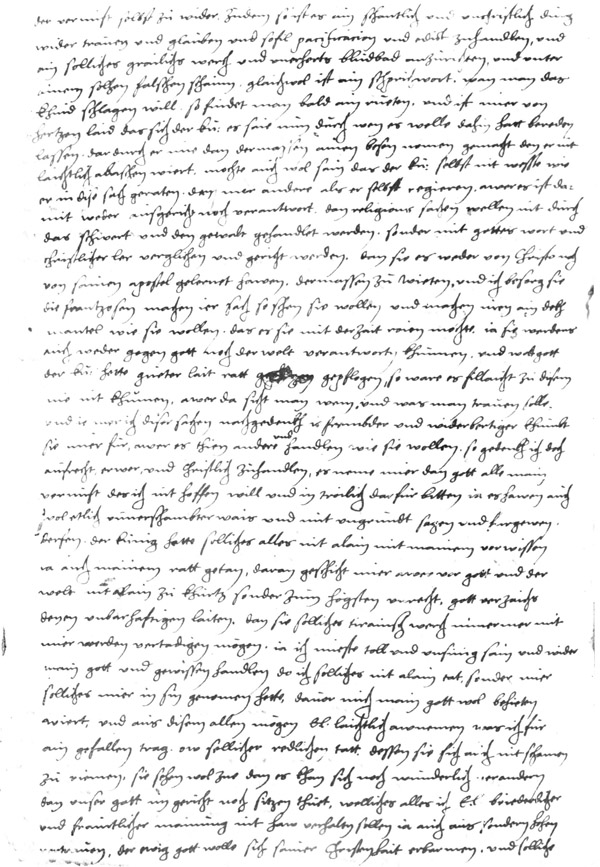 der vernunft selbst zu wider. Zudem so ist es ain schantlich und unchristlich ding
wider trauen und glauben und sofil pacificacion und edikt zu handlen, und
ain solliches greilichs werch und unerherts bluedbad anzurichten, und unter
ainem solhen falschen schainn. gleichwol ist ain sprichwort, wan man das
khind schlagen will, so findet man bald ain rueten. und ist mier von
hertzen laid das sich der kü: er seie nun durch wen es welle dahin hatt bereden
lassen. dardurch er ime dan dermassen ainen besen nomen gemacht den er nit
laichtlich abaschen wiert. mechte auch wol sain das der kü: selbst nit wesste wie
er in dise sach geraten. das mer andere als er selbst regieren, awer es ist da-
mit weder ausgericht noch verantwort. dan religions sachen wellen nit durch
das schwert und den gewalt gehandlet werden. sonder mit gottes wort und
christlicher ler verglichen und gericht werden. dan sie es weder von Christo noch
von sainen apostel gelernet hawen. dermassen zu wieten, und ich besorg sie
die Frantzosen machen ier sach so schen sie wollen und machen inen ain dekh
mantel wie sie wollen. das er sie mit der zait raien mechte. ia sy werdens
auch weder gegen gott noch der welt verantworten khinnen. und wolt gott
der kü: hette gueter lait ratt gepflogen, so ware es fillaicht zu disem
nie nit khumen, awer da sicht man wem, und was man trauen solle.
und ie mer ich diser sachen nachgedenkh ie frembder und widerwertiger khumbt
sie mier für, awer es thien andere und handlen wie sie wollen. so gedenkh ich doch
aufrecht, erwer, und christlich zu handlen, es neme mier dan gott alle main
vernunft des ich nit hoffen will und in treilich darfür bitten ia es hawen auch
wol etlich unverschambter wais und mit ungrundt sagen und firgewen
derfen. der künig hette solliches alles nit alain mit mainem vorwissen
ia auch mainem ratt getan, daran geschicht mier vor gott und der
welt nit alain zu khurtz sonder zum högsten unrecht, gott verzaichs
denen unwarhaftigen laiten. dan sie solliches tiranisch werch nimermer mit
mier werden vertadigen mögen. ia ich mieste toll und unsinig sain und wider
main gott und gewissen handlen do ich solliches nit alain tat, sonder mier
solliches mier in sin genomen hette, davor mich main gott wol behieten
wiert, und aus disem allen mögen E: L: laichtlich awnemen was ich für
ain gefallen trag ow sollicher redlichen tatt, dessen sie sich auch nit schamen
zu riemen, sie sehen wol zue dan es khan sich noch wunderlich verandern
dan unser gott im gericht noch sitzen thuet, welliches alles ich E: L: briederlicher
und fraintlicher mainung nit haw verhalten sollen ia auch aus sondern hohen
vertrauen, der ewig gott welle sich sainer Christenhait erbarmen, und solliche